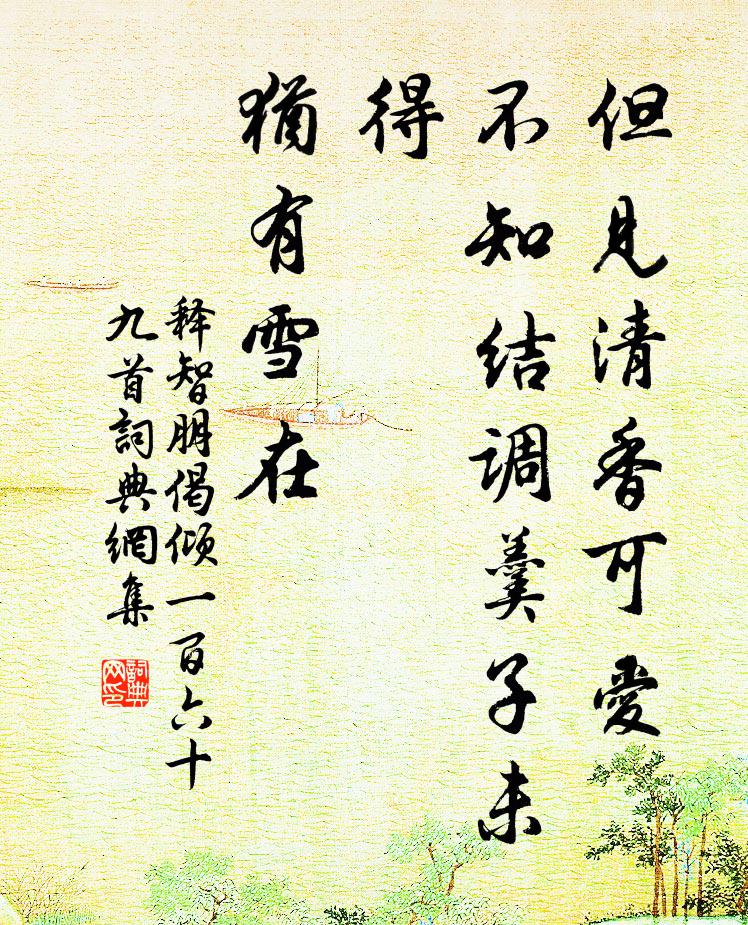 但见清香可愛
不知结调羹子未
得
猶有雪在
释智朋偈倾一百六十
九首詞典網集
詞典
网印